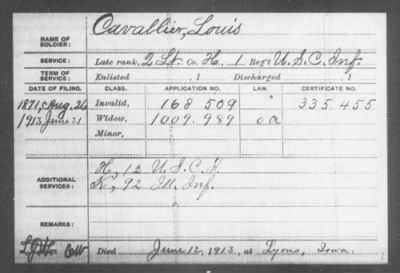 NAME OF SOLDIER: Cavallier, Louis
SERVICE: Late rank, 2 Lt. Co. H, 1 Reg't U.S.C. Inf.
TERM OF SERVICE: Enlisted , 1 Discharged , 1
DATE OF FILING. CLASS. APPLICATION NO. LAW. CERTIFICATE NO.
1871, Aug. 26 Invalid, 168 509 335.455
1913 June 21 Widow, 1009.989 oa
Minor,
ADDITIONAL SERVICES: H, 12 U.S.C.I.
K, 92 Ill. Inf.
REMARKS:
Died June 12, 1913, at Lyons, Iowa.